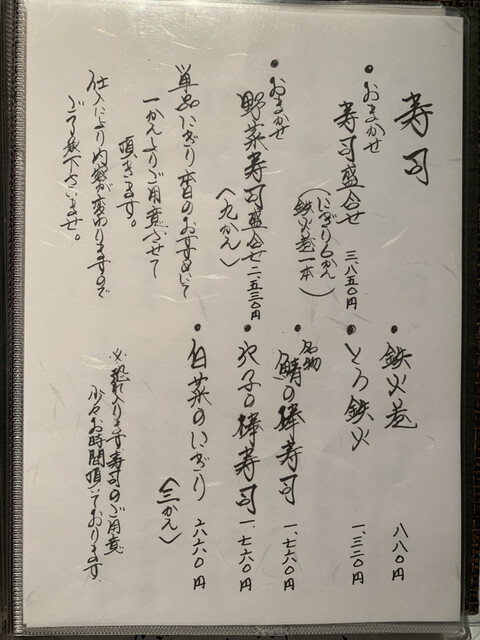 寿司
•おまかせ
寿司盛合せ 三、八五〇円
(にぎり六かん
鉄火巻一本)
•おまかせ
野菜寿司盛合せ 二、五三〇円
(九かん)
単品にぎり本日のおすすめにて
一かんよりご用意させて
頂きます。
仕入により内容が変わりますので
ご了承下さいませ。
•鉄火巻 八八〇円
•とろ鉄火 一、三二〇円
名物
•鯖の棒寿司 一、七六〇円
•穴子の棒寿司 一、七六〇円
•白菜のにぎり 六六〇円
(三かん)
※恐れ入りますが寿司のご用意
少々お時間頂いております